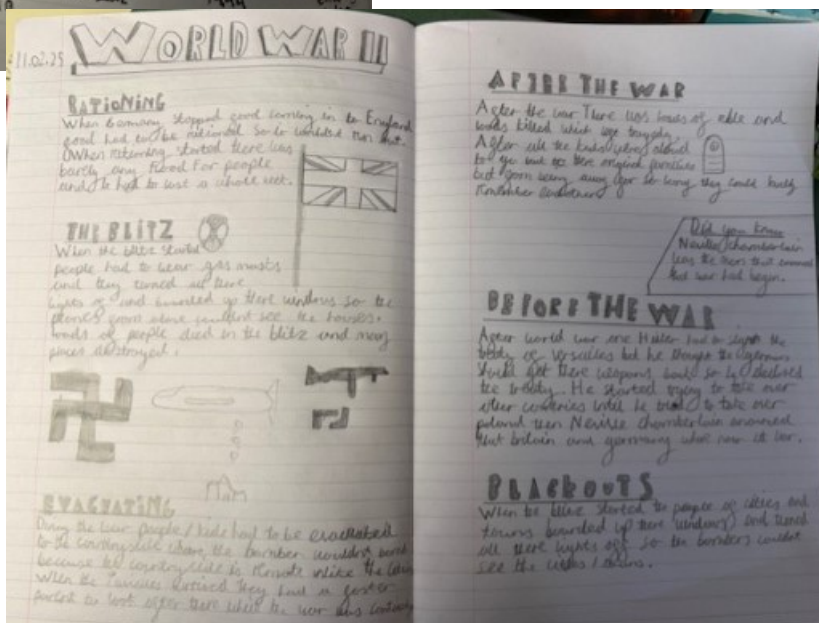 11.02.25
WORLD WAR II
RATIONING
When Germany stopped food coming in to England
food had to be rationed so it wouldnt run out.
When rationing started there was
barely any food for people
and it had to last a whole week.
THE BLITZ
When the blitz started
people had to wear gas masks
and they turned all there
lights of and bourded up there windows so the
planes from above couldnt see the houses.
loads of people died in the blitz and many
places destroyed.
EVACUATING
During the war people / kids had to be evacuated
to the countryside where the bomber wouldn't bomb
because the countryside is unlike the cities
When the they had a foster
parent to look after there whilst the war was
AFTER THE WAR
After the war There was loads of and
loads killed which was
After all the kids were allowed
to go back to there original families
but from being away for so long they could barly
remember eachother
Did you know
Neville chamberlain
was the man that anounced
that war had begun.
BEFORE THE WAR
After world war one Hitler had to the
treaty of versailles but he thought the germans
should get there weapons back so he
the treaty. He started trying to take over
other countries until he tried to take over
poland then Neville chamberlain anounced
that britain and germany were now at war.
BLACKOUTS
When the blitz started the people of cities and
towns bourded up there windows and turned
all there lights off so the bombers couldnt
see the cities / towns.